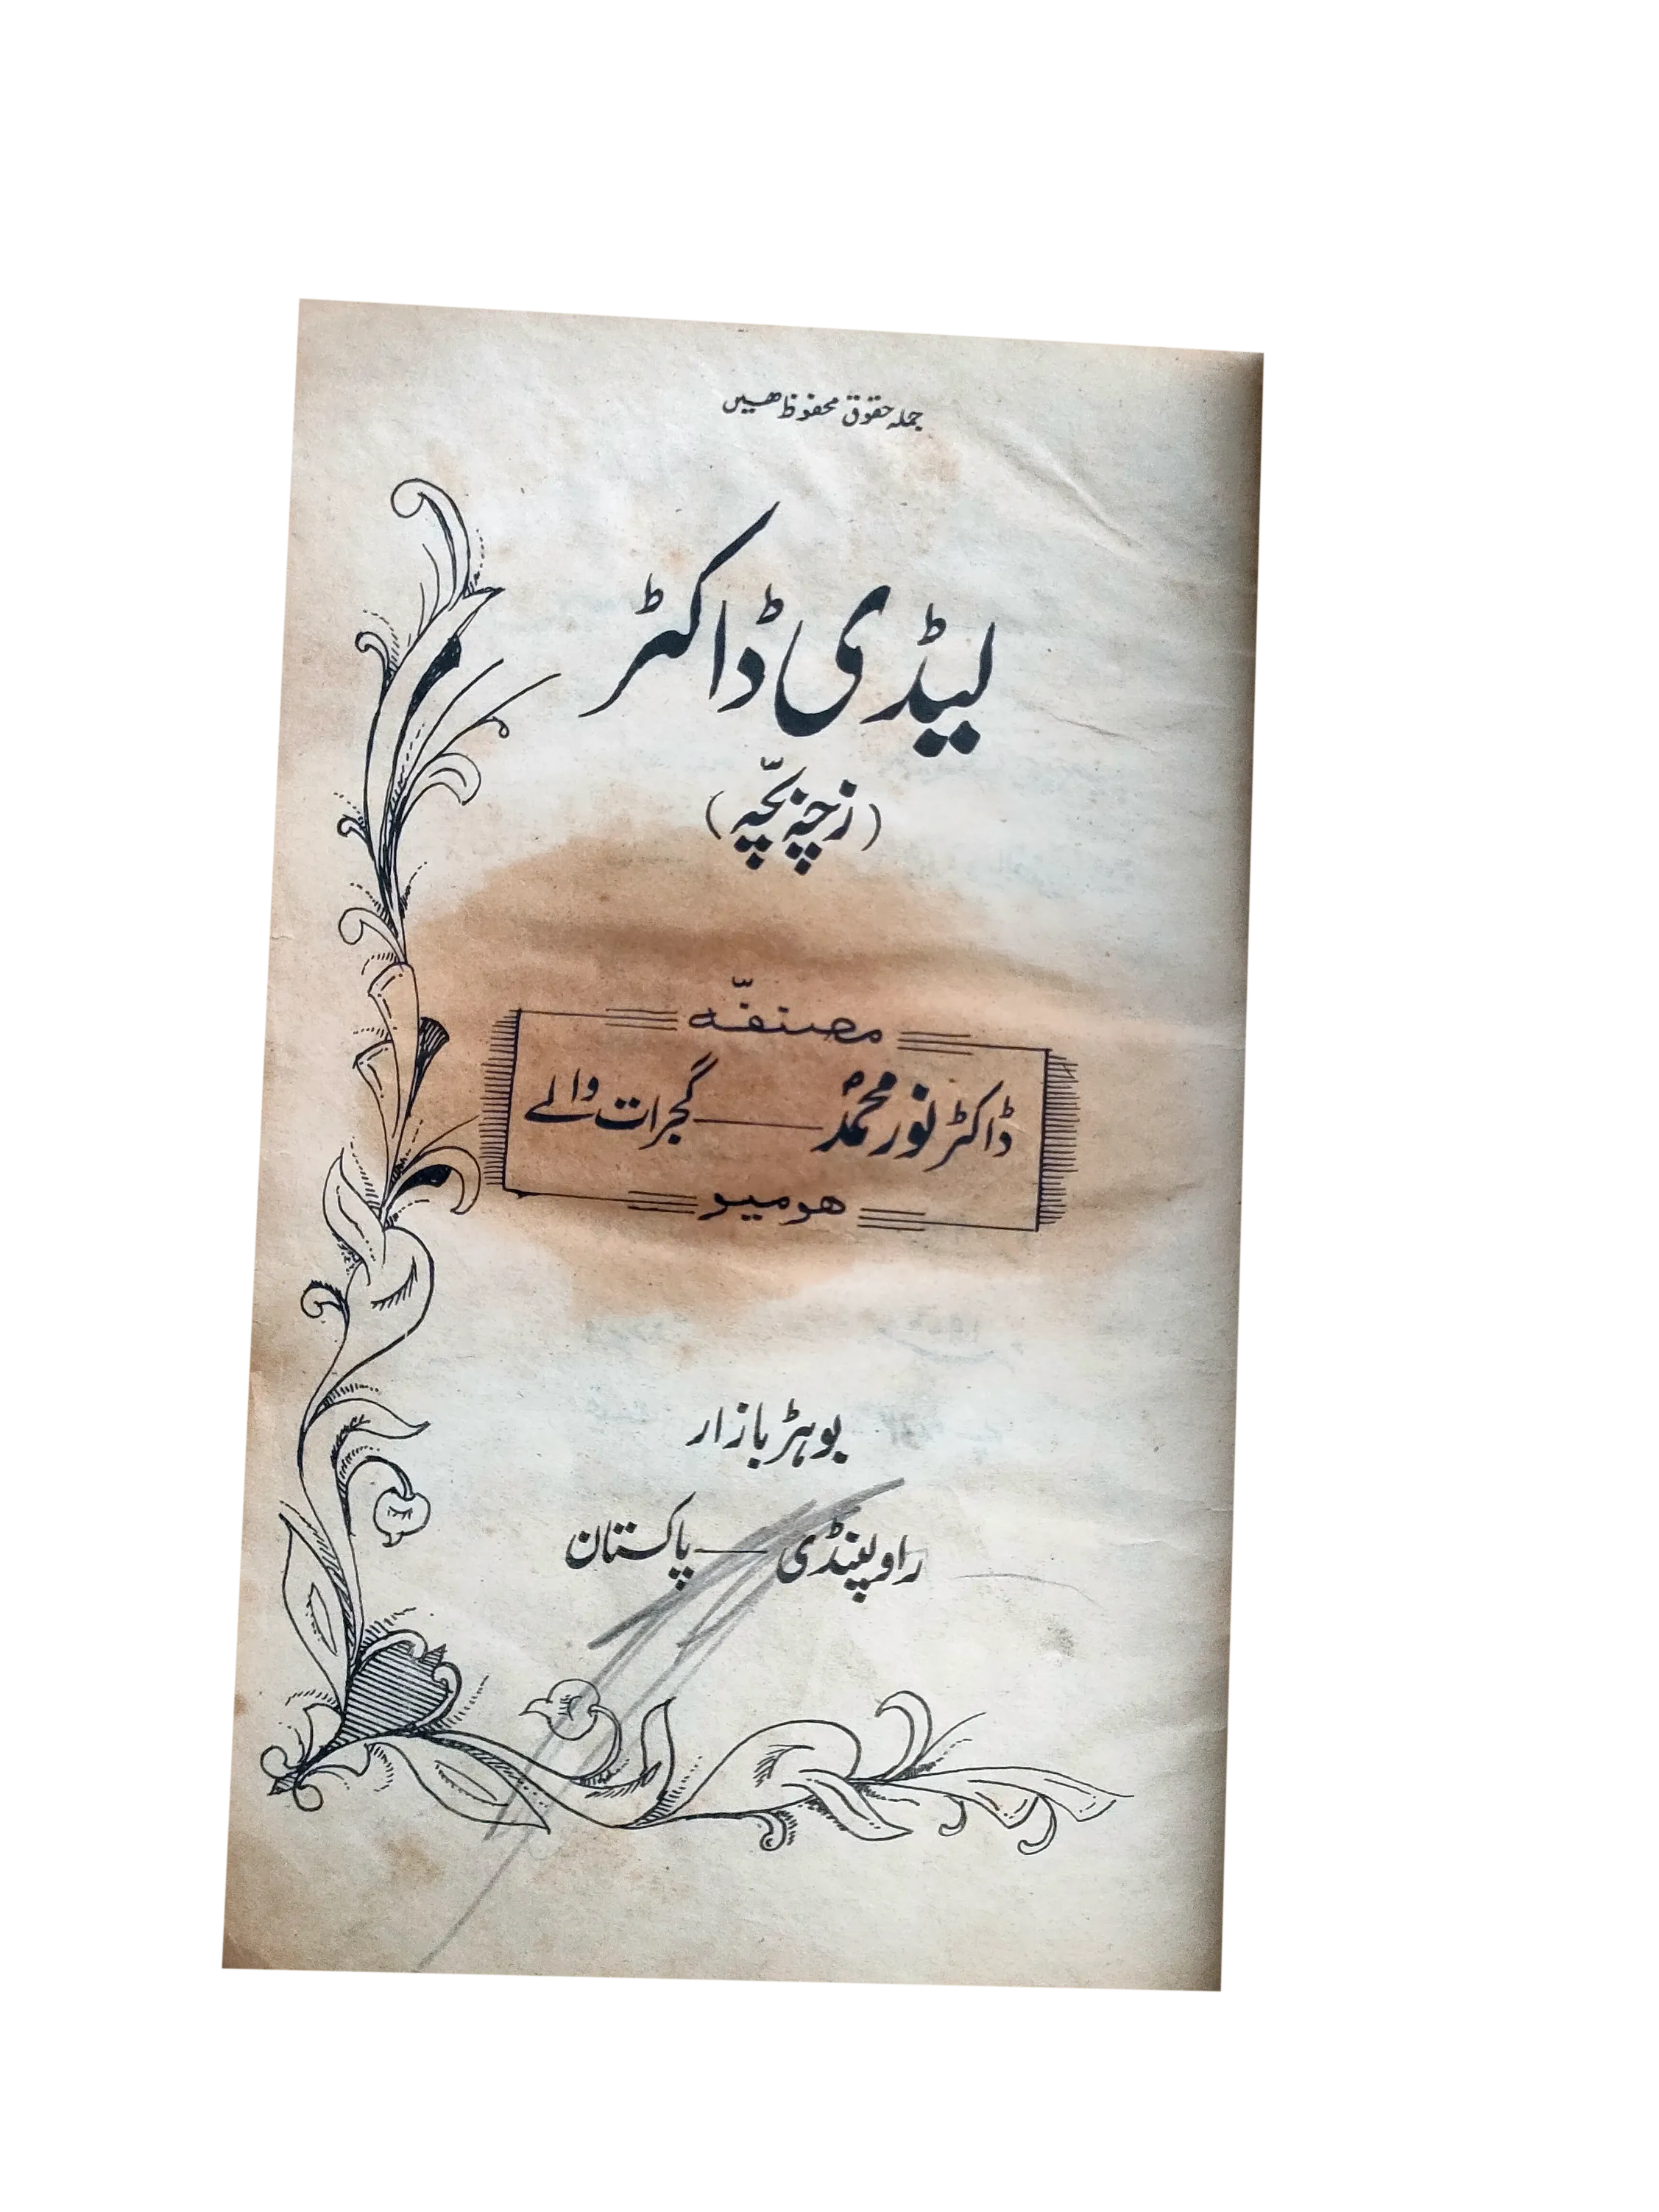 جملہ حقوق محفوظ ھیں
لیڈی ڈاکٹر
(زچہ بچّہ)
مصنفّہ
ڈاکٹر نور محمدؐ — گجرات والے
ھومیو
بوہڑ بازار
راولپنڈی — پاکستان